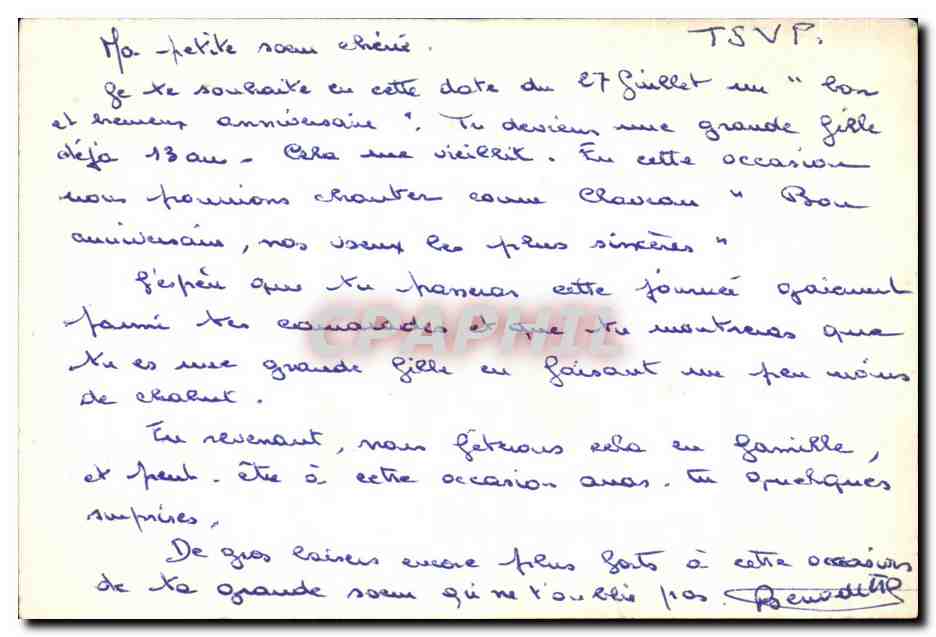 TSVP.
Ma petite soeur chérie.
Je te souhaite en cette date du 27 Juillet un " bon
et heureux anniversaire ". Tu deviens une grande fille
déjà 13 ans - Cela me vieillit. En cette occasion
nous pourrions chanter comme Claveau " Bon
anniversaire, nos voeux les plus sincères "
J'espère que tu passeras cette journée gaiement
parmi tes camarades et que tu montreras que
tu es une grande fille en faisant un peu moins
de chahut.
En revenant, nous fêterons cela en famille,
et peut-être à cette occasion auras-tu quelques
surprises,
De gros baisers encore plus forts à cette occasion
de ta grande soeur qui ne t'oublie pas.
CPAPHIL